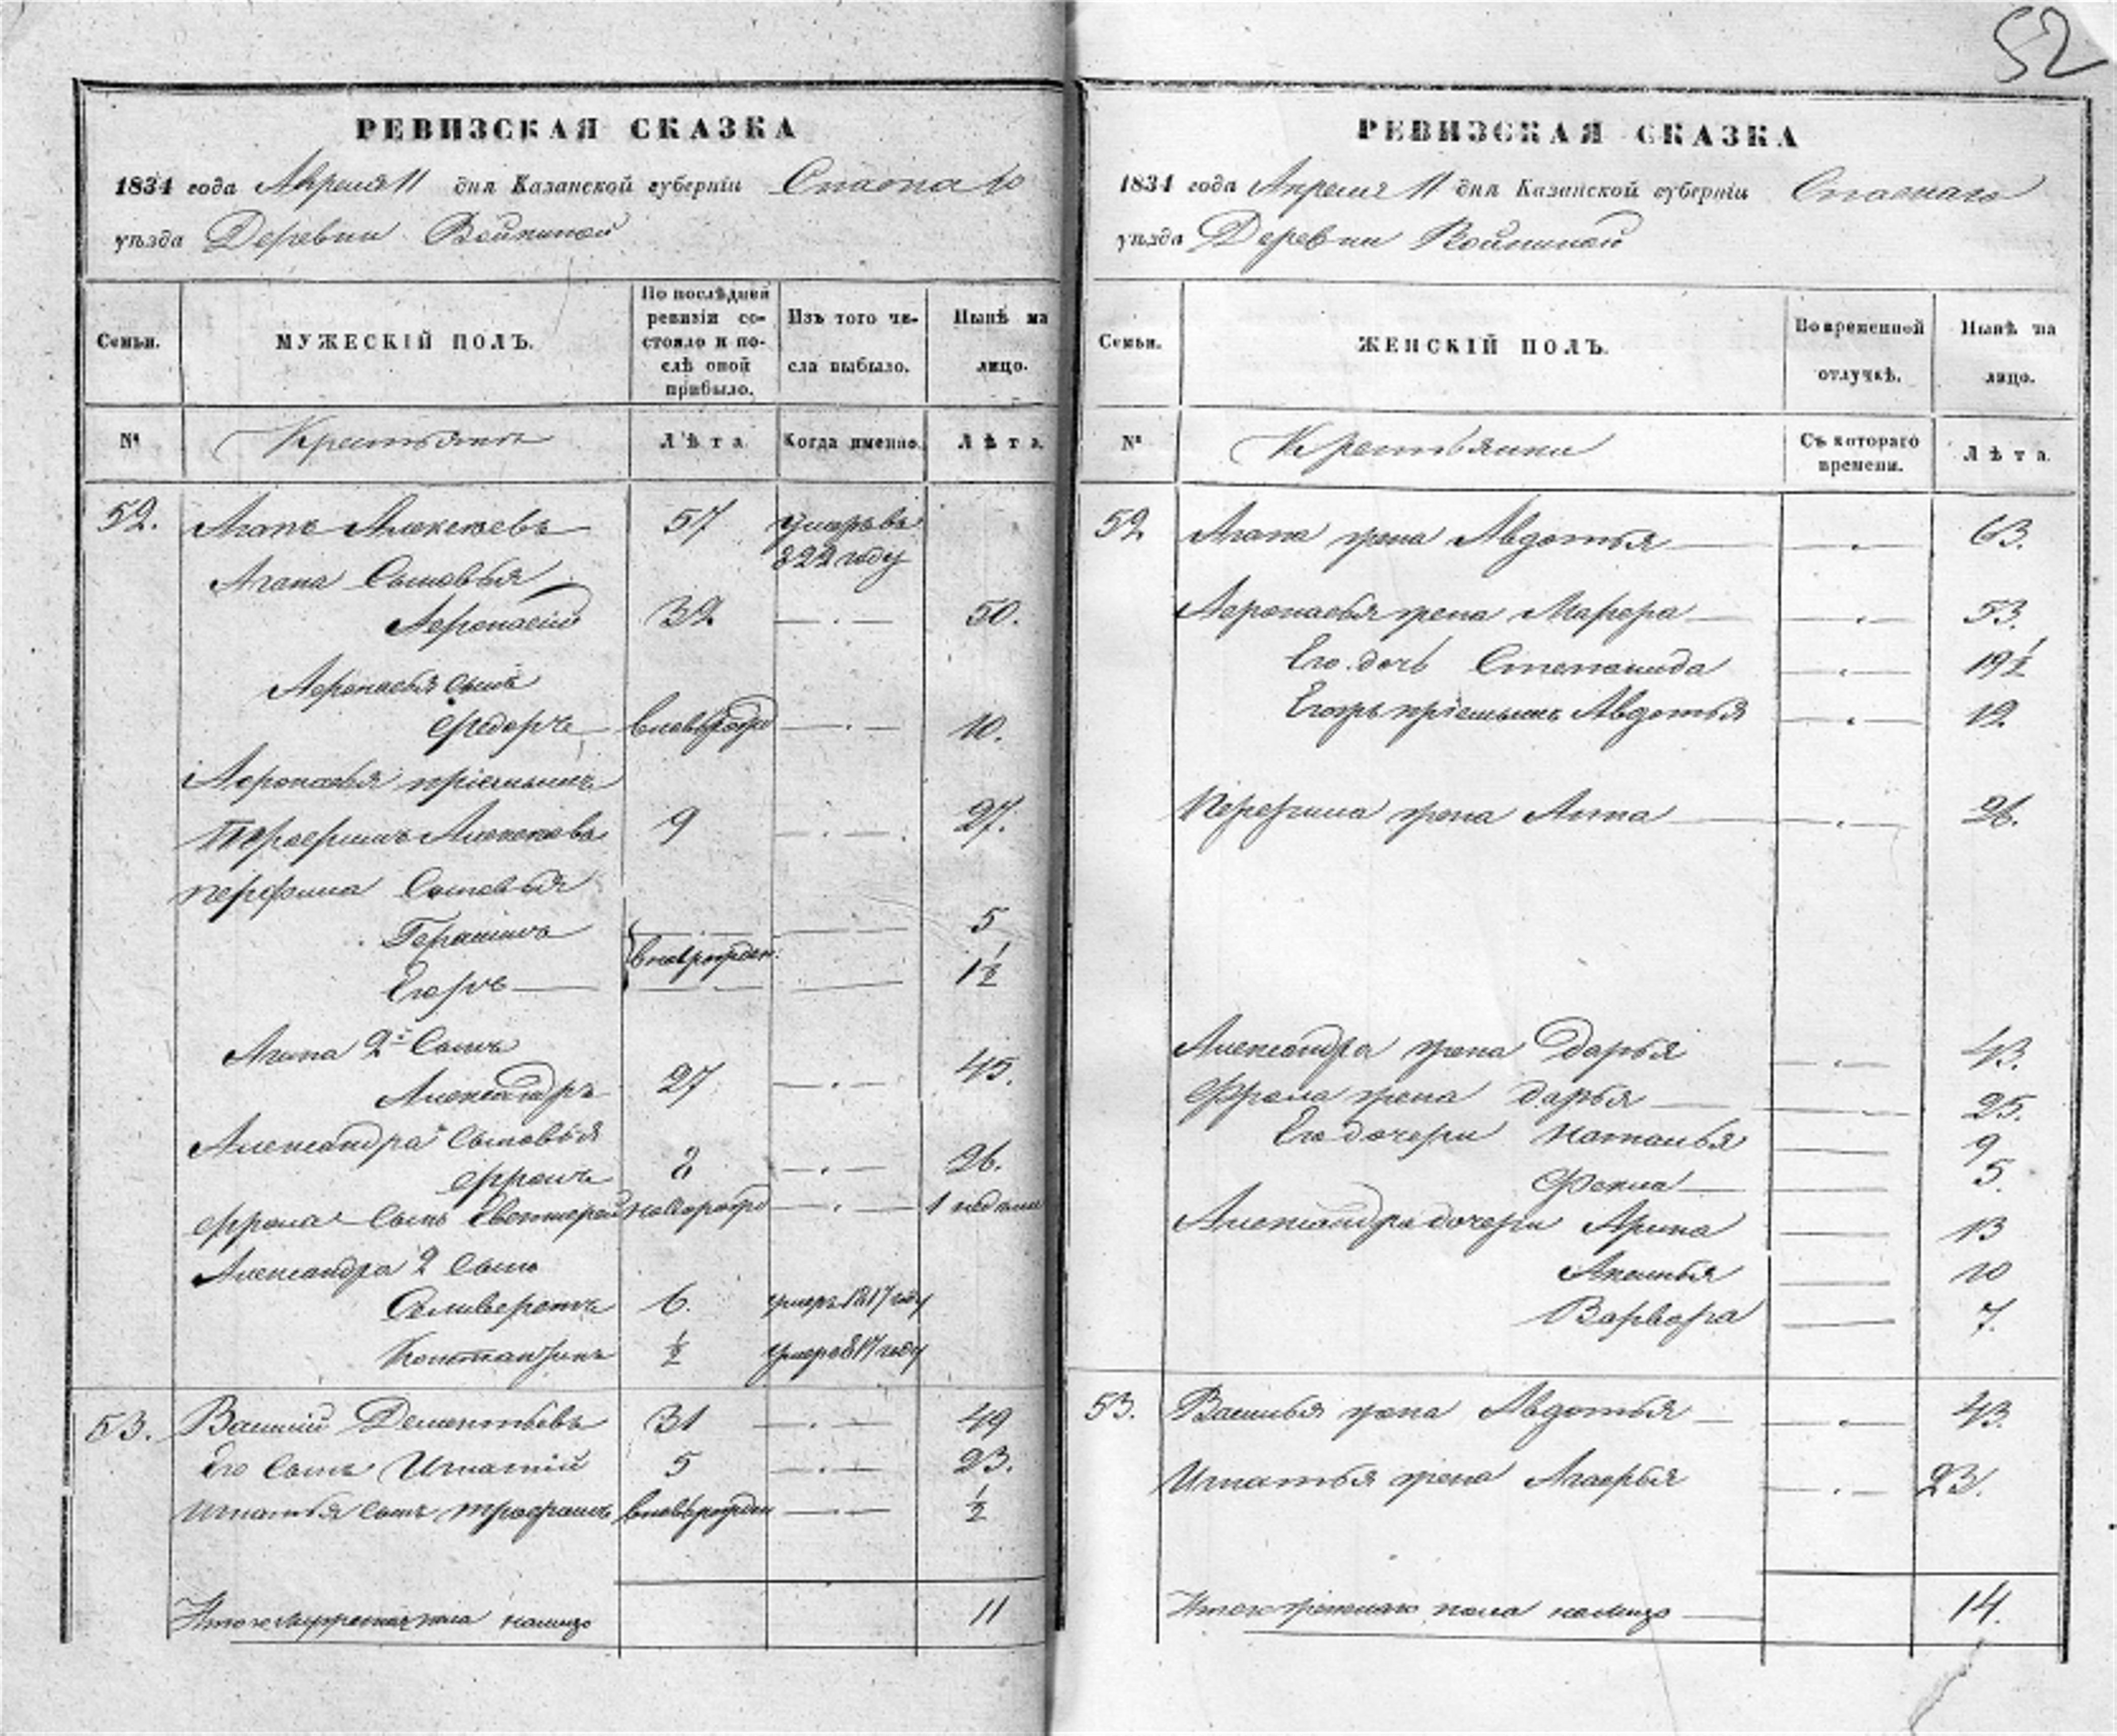 52
РЕВИЗСКАЯ СКАЗКА
1834 года Апреля 11 дня Казанской губерніи Спаскаго
уѣзда Деревни Войкиной
Семьи.
МУЖЕСКІЙ ПОЛЪ.
По послѣдней ревизіи со-
стояло и по-
слѣ оной
прибыло.
Изъ того чи-
сла выбыло.
Нынѣ на
лицо.
№
Крестьяне
Лѣта
Когда именно.
Лѣта.
52. Агапъ Алексеевъ 57 умеръ въ
822 году
Агапа Сыновья
Афонасій 32 50.
Афонасья сынъ
Федоръ вновьрожд 10.
Афонасья пріемышъ
Перфилъ 9 27.
Перфила Сыновья
Герасимъ 5
вновьрожден.
Егоръ 1½
Агапа 2й Сынъ
Александръ 27 45.
Александра Сыновья
Фролъ 8 26.
Фрола Сынъ новорожд 1 недели
Александра 2 Сынъ
Селиверстъ 6. умеръ 1817 году
Константинъ ½ умеръ 817 году
53. Василій Дементьевъ 31 49
Его Сынъ Игнатій 5 23.
Игнатья Сынъ Трофимъ вновьрожден ½
Итого мужеска пола налицо 11
РЕВИЗСКАЯ СКАЗКА
1834 года Апреля 11 дня Казанской губерніи Спаскаго
уѣзда Деревни Войкиной
Семьи.
ЖЕНСКІЙ ПОЛЪ.
Во временной
отлучкѣ.
Нынѣ на
лицо.
№
Крестьянки
Съ котораго
времени.
Лѣта.
52 Агапа жена Авдотья 63.
Афонасья жена Марфа 53.
Его дочь Степанида 19½
пріемышъ Авдотья 12
Перфила жена Анна 26.
Александра жена Дарья 43.
Фрола жена Дарья 25.
Его дочери Наталья 9
Фекла 5.
Александра дочери Арина 13
10
Варвара 7.
53. Василья жена Авдотья 43.
Игнатья жена Агафья 23.
Итого женскаго пола налицо 14.